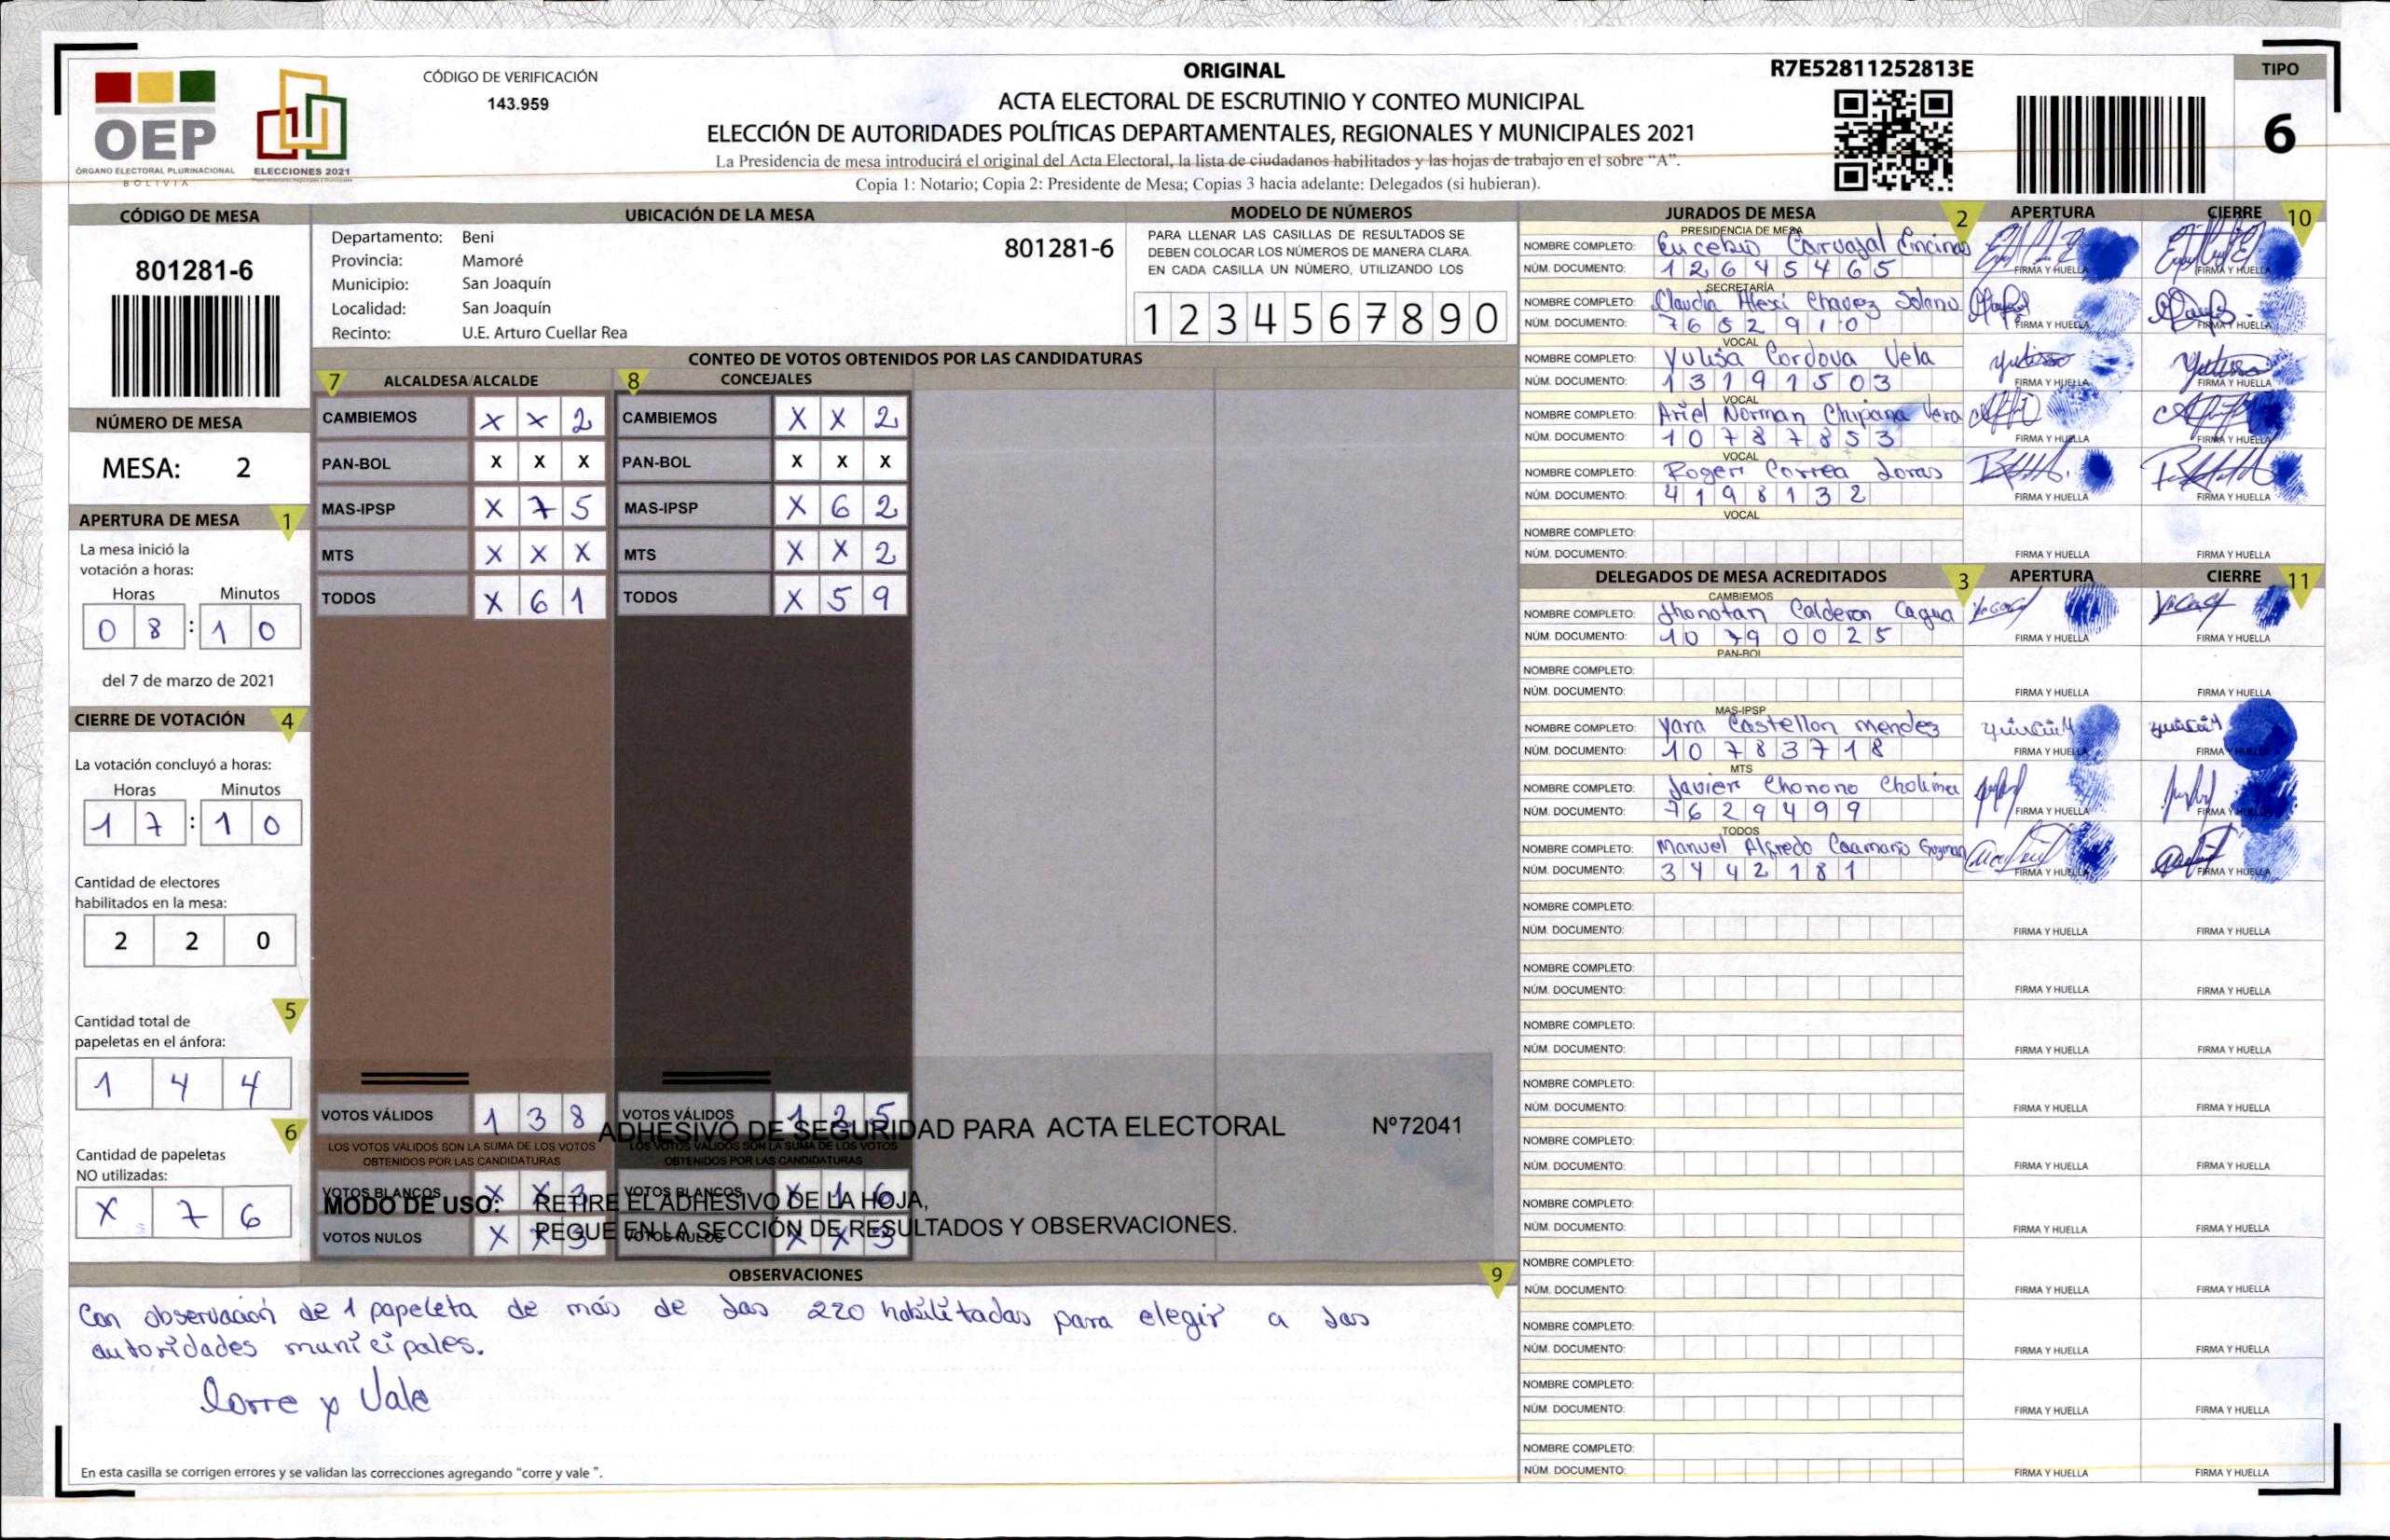 OEP
ÓRGANO ELECTORAL PLURINACIONAL
BOLIVIA
ELECCIONES 2021
CÓDIGO DE VERIFICACIÓN
143.959
ORIGINAL
ACTA ELECTORAL DE ESCRUTINIO Y CONTEO MUNICIPAL
ELECCIÓN DE AUTORIDADES POLÍTICAS DEPARTAMENTALES, REGIONALES Y MUNICIPALES 2021
La Presidencia de mesa introducirá el original del Acta Electoral, la lista de ciudadanos habilitados y las hojas de trabajo en el sobre “A”.
Copia 1: Notario; Copia 2: Presidente de Mesa; Copias 3 hacia adelante: Delegados (si hubieran).
R7E52811252813E
TIPO
6
CÓDIGO DE MESA
801281-6
NÚMERO DE MESA
MESA: 2
APERTURA DE MESA 1
La mesa inició la
votación a horas:
Horas Minutos
0 8 : 1 0
del 7 de marzo de 2021
CIERRE DE VOTACIÓN 4
La votación concluyó a horas:
Horas Minutos
1 7 : 1 0
Cantidad de electores
habilitados en la mesa:
2 2 0
5
Cantidad total de
papeletas en el ánfora:
1 4 4
6
Cantidad de papeletas
NO utilizadas:
X 7 6
UBICACIÓN DE LA MESA
Departamento: Beni
801281-6
Provincia: Mamoré
Municipio: San Joaquín
Localidad: San Joaquín
Recinto: U.E. Arturo Cuellar Rea
MODELO DE NÚMEROS
PARA LLENAR LAS CASILLAS DE RESULTADOS SE
DEBEN COLOCAR LOS NÚMEROS DE MANERA CLARA.
EN CADA CASILLA UN NÚMERO, UTILIZANDO LOS
1 2 3 4 5 6 7 8 9 0
CONTEO DE VOTOS OBTENIDOS POR LAS CANDIDATURAS
7 ALCALDESA/ALCALDE 8 CONCEJALES
CAMBIEMOS X X 2 CAMBIEMOS X X 2
PAN-BOL X X X PAN-BOL X X X
MAS-IPSP X 7 5 MAS-IPSP X 6 2
MTS X X X MTS X X 2
TODOS X 6 1 TODOS X 5 9
VOTOS VÁLIDOS 1 3 8 VOTOS VÁLIDOS 1 2 5
LOS VOTOS VÁLIDOS SON LA SUMA DE LOS VOTOS LOS VOTOS VÁLIDOS SON LA SUMA DE LOS VOTOS
OBTENIDOS POR LAS CANDIDATURAS OBTENIDOS POR LAS CANDIDATURAS
VOTOS BLANCOS X X 3 VOTOS BLANCOS X 1 6
VOTOS NULOS X X 3 VOTOS NULOS X X 3
ADHESIVO DE SEGURIDAD PARA ACTA ELECTORAL Nº72041
MODO DE USO: RETIRE EL ADHESIVO DE LA HOJA,
PEGUE EN LA SECCIÓN DE RESULTADOS Y OBSERVACIONES.
OBSERVACIONES 9
Con observación de 1 papeleta de más de las 220 habilitadas para elegir a las
autoridades municipales.
Corre y Vale
En esta casilla se corrigen errores y se validan las correcciones agregando “corre y vale ”.
JURADOS DE MESA 2 APERTURA CIERRE 10
PRESIDENCIA DE MESA
NOMBRE COMPLETO: Eucebio Carvajal Encinas
NÚM. DOCUMENTO: 12645465 FIRMA Y HUELLA FIRMA Y HUELLA
SECRETARÍA
NOMBRE COMPLETO: Claudia Alexi Chavez Solano
NÚM. DOCUMENTO: 7652910 FIRMA Y HUELLA FIRMA Y HUELLA
VOCAL
NOMBRE COMPLETO: Yulisa Cordova Vela
NÚM. DOCUMENTO: 13191503 FIRMA Y HUELLA FIRMA Y HUELLA
VOCAL
NOMBRE COMPLETO: Ariel Norman Chipana Vera
NÚM. DOCUMENTO: 10787853 FIRMA Y HUELLA FIRMA Y HUELLA
VOCAL
NOMBRE COMPLETO: Roger Correa Loras
NÚM. DOCUMENTO: 4198132 FIRMA Y HUELLA FIRMA Y HUELLA
VOCAL
NOMBRE COMPLETO:
NÚM. DOCUMENTO: FIRMA Y HUELLA FIRMA Y HUELLA
DELEGADOS DE MESA ACREDITADOS 3 APERTURA CIERRE 11
CAMBIEMOS
NOMBRE COMPLETO: Jhonatan Calderon Cagua
NÚM. DOCUMENTO: 10790025 FIRMA Y HUELLA FIRMA Y HUELLA
PAN-BOL
NOMBRE COMPLETO:
NÚM. DOCUMENTO: FIRMA Y HUELLA FIRMA Y HUELLA
MAS-IPSP
NOMBRE COMPLETO: Yara Castellon Mendez
NÚM. DOCUMENTO: 10783718 FIRMA Y HUELLA FIRMA Y HUELLA
MTS
NOMBRE COMPLETO: Javier Chonono Cholima
NÚM. DOCUMENTO: 7629499 FIRMA Y HUELLA FIRMA Y HUELLA
TODOS
NOMBRE COMPLETO: Manuel Alfredo Caamaño Guzman
NÚM. DOCUMENTO: 3442181 FIRMA Y HUELLA FIRMA Y HUELLA
NOMBRE COMPLETO:
NÚM. DOCUMENTO: FIRMA Y HUELLA FIRMA Y HUELLA
NOMBRE COMPLETO:
NÚM. DOCUMENTO: FIRMA Y HUELLA FIRMA Y HUELLA
NOMBRE COMPLETO:
NÚM. DOCUMENTO: FIRMA Y HUELLA FIRMA Y HUELLA
NOMBRE COMPLETO:
NÚM. DOCUMENTO: FIRMA Y HUELLA FIRMA Y HUELLA
NOMBRE COMPLETO:
NÚM. DOCUMENTO: FIRMA Y HUELLA FIRMA Y HUELLA
NOMBRE COMPLETO:
NÚM. DOCUMENTO: FIRMA Y HUELLA FIRMA Y HUELLA
NOMBRE COMPLETO:
NÚM. DOCUMENTO: FIRMA Y HUELLA FIRMA Y HUELLA
NOMBRE COMPLETO:
NÚM. DOCUMENTO: FIRMA Y HUELLA FIRMA Y HUELLA
NOMBRE COMPLETO:
NÚM. DOCUMENTO: FIRMA Y HUELLA FIRMA Y HUELLA
NOMBRE COMPLETO:
NÚM. DOCUMENTO: FIRMA Y HUELLA FIRMA Y HUELLA